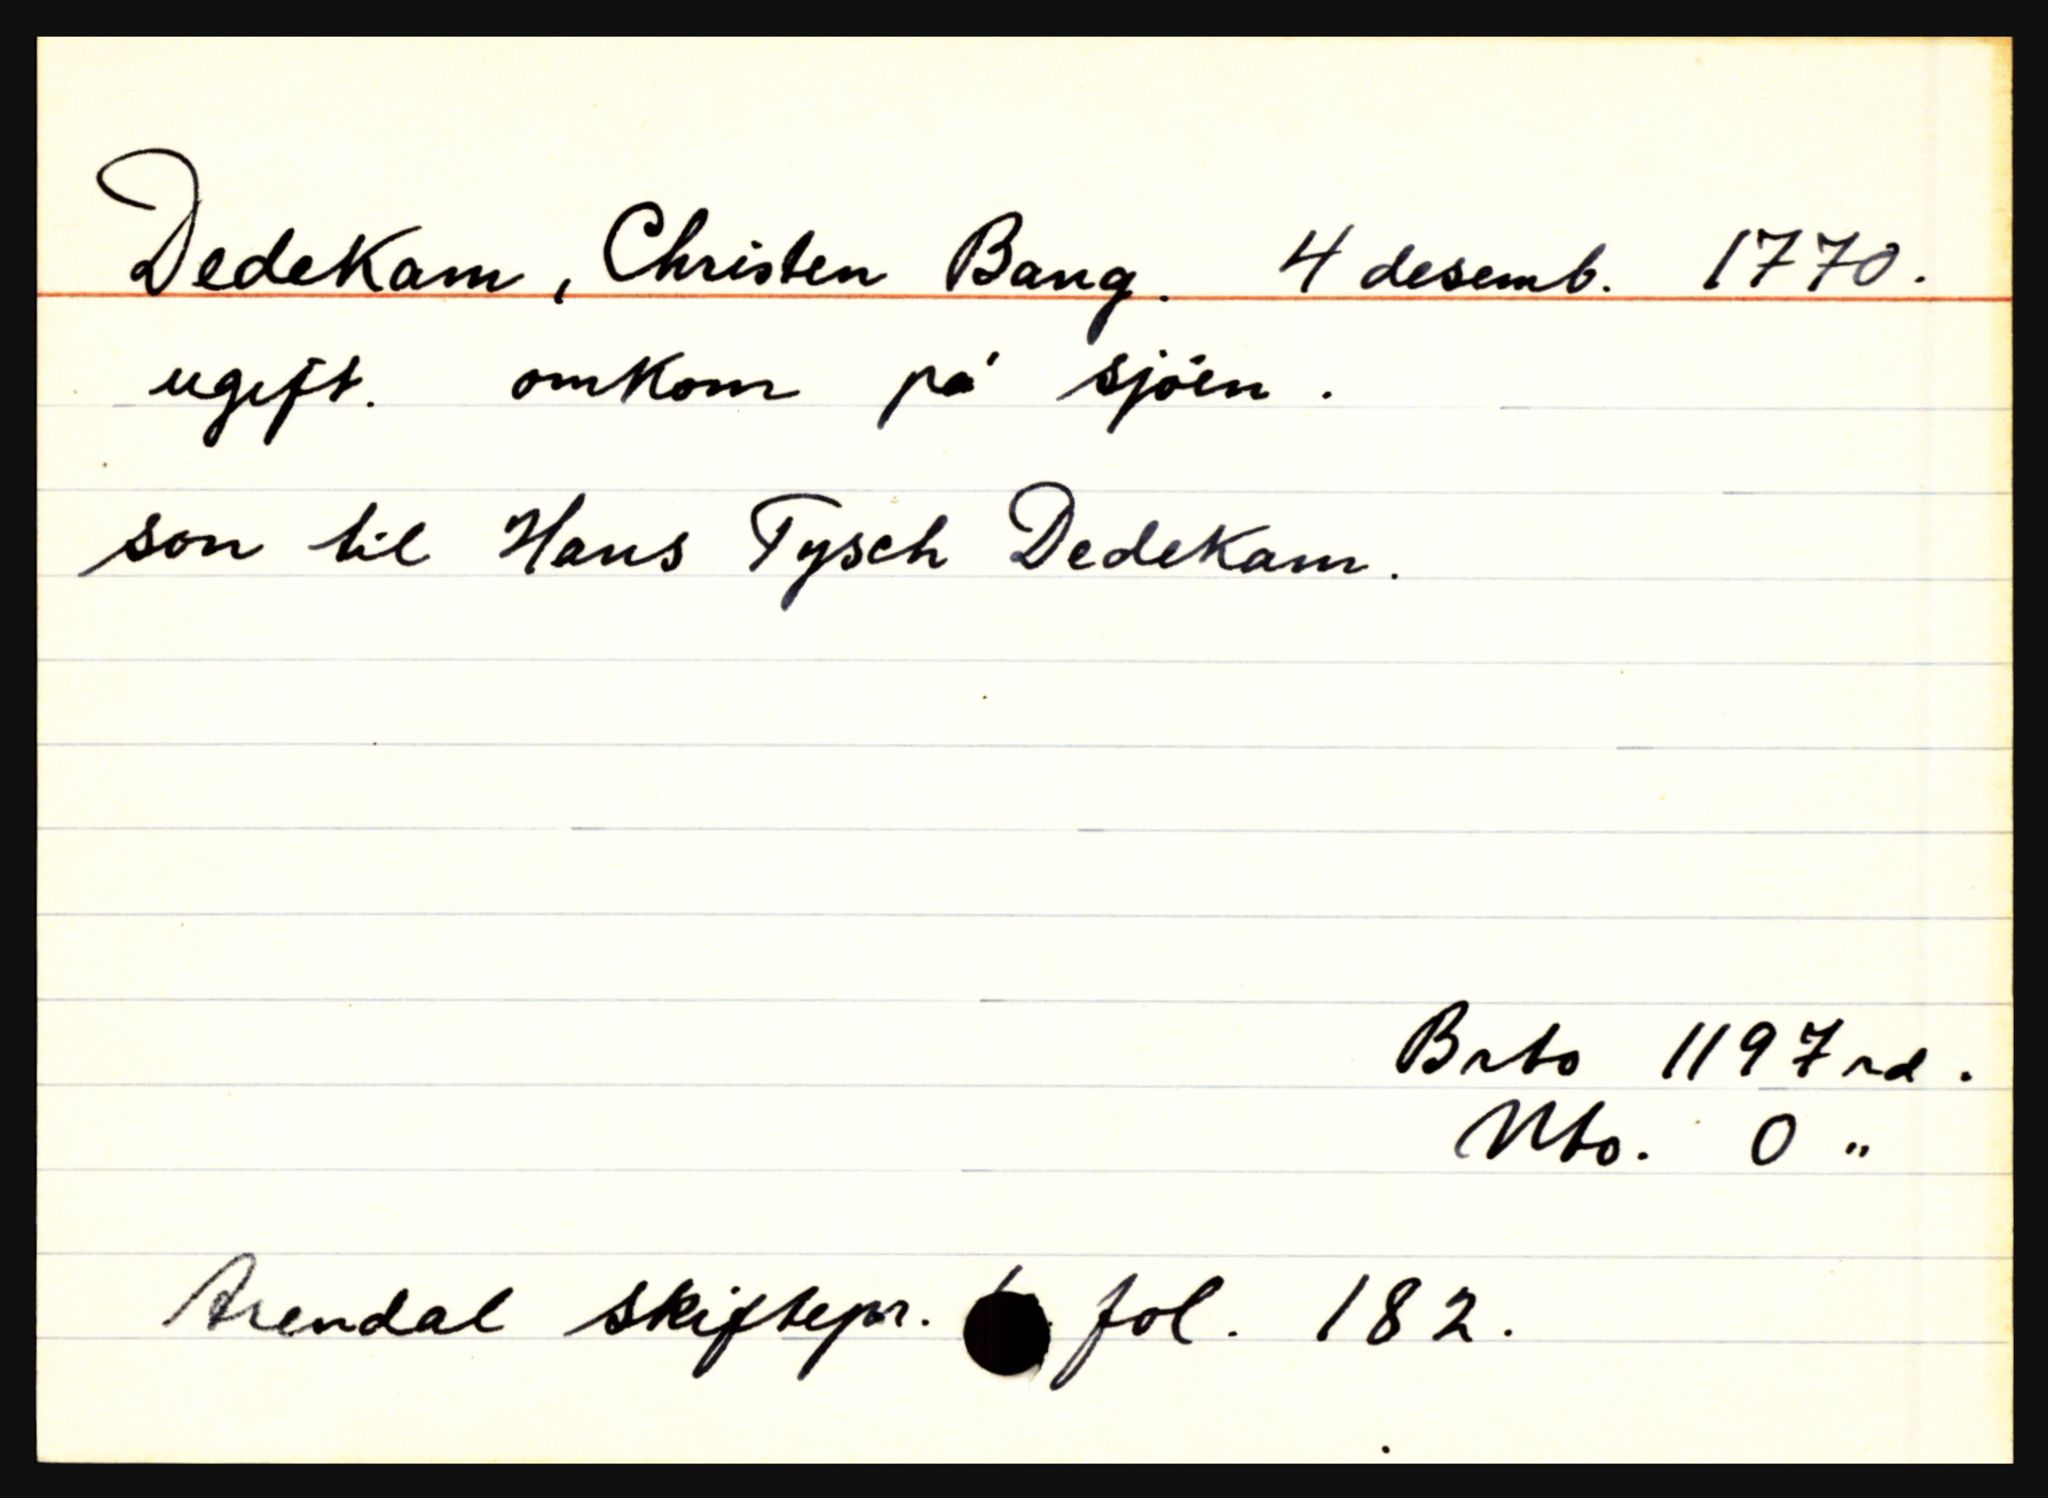 Dedekam, Christen Bang. 4 desemb. 1770.
ugift. omkom på sjöen.
son til Hans Tysch Dedekam.
Brto 1197 rd.
Nto. 0 "
Arendal skiftepr. fol. 182.